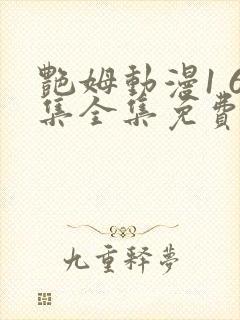 艷姆動漫1 6
集全集免費
九重釋夢